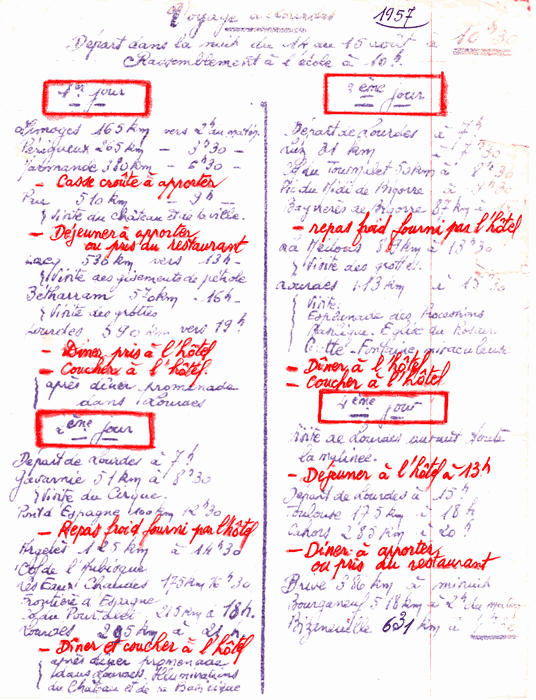 Voyage à Lourdes
1957
Départ dans la nuit du 14 au 15 août à
Rassemblement à l'école à 10h
1er jour
Limoges 165 km vers 2h du matin
Périgueux 265 km - 3h30 -
Marmande 380 km - 6h30 -
- Casse croûte à apporter
Pau 510 km - 9h -
Visite du Château et de la ville.
- Déjeuner à apporter
ou pris au restaurant
Lacq 536 km vers 13h -
Visite des gisements de pétrole
Bétharram 570 km - 16h -
Visite des grottes
Lourdes 590 km vers 19h
- Dîner pris à l'hôtel
- Coucher à l'hôtel
après dîner promenade
dans Lourdes
2ème jour
Départ de Lourdes à 7h
Gavarnie 51 km à 8h30
Visite du Cirque.
Pont d'Espagne 100 km 12h30
- Repas froid fourni par l'hôtel
Argelès 125 km à 14h30
Col de l'Aubisque
Les Eaux Chaudes 175 km 16h30
Frontière d'Espagne
Col du Pourtalet 215 km à 18h.
Lourdes 295 km à 21h
- Dîner et coucher à l'hôtel
après dîner promenade
dans Lourdes. Illuminations
du Château et de la Basilique
3ème jour
Départ de Lourdes à 7h
Luz 31 km 7h30
Col du Tourmalet 50 km à 8h30
Pic du Midi de Bigorre
Bagnères de Bigorre 87 km à
- repas froid fourni par l'hôtel
à 13h30
Visite des grottes.
Lourdes 113 km à 15h30
Visite
Esplanade des Processions
Basilique. Eglise du Rosaire
Grotte. Fontaine miraculeuse
- Dîner à l'hôtel
- Coucher à l'hôtel
4ème jour
Visite de Lourdes durant toute
la matinée.
- Déjeuner à l'hôtel à 13h
Départ de Lourdes à 15h
Toulouse 175 km à 18h
Cahors 285 km à 20h
- Dîner à apporter
ou pris au restaurant
Brive 386 km à minuit
Bourganeuf 518 km à 2h du matin
Bizeneuille 631 km à